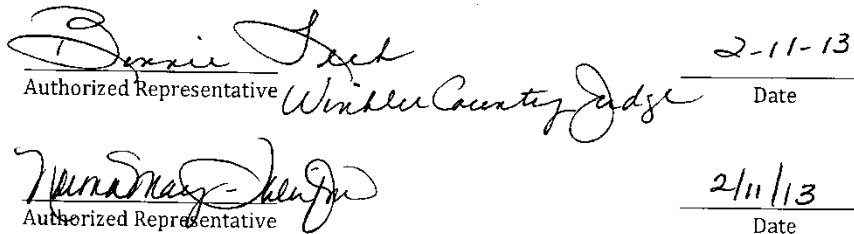 Bonnie Leck 2-11-13
Authorized Representative Winkler County Judge Date
2/11/13
Authorized Representative Date